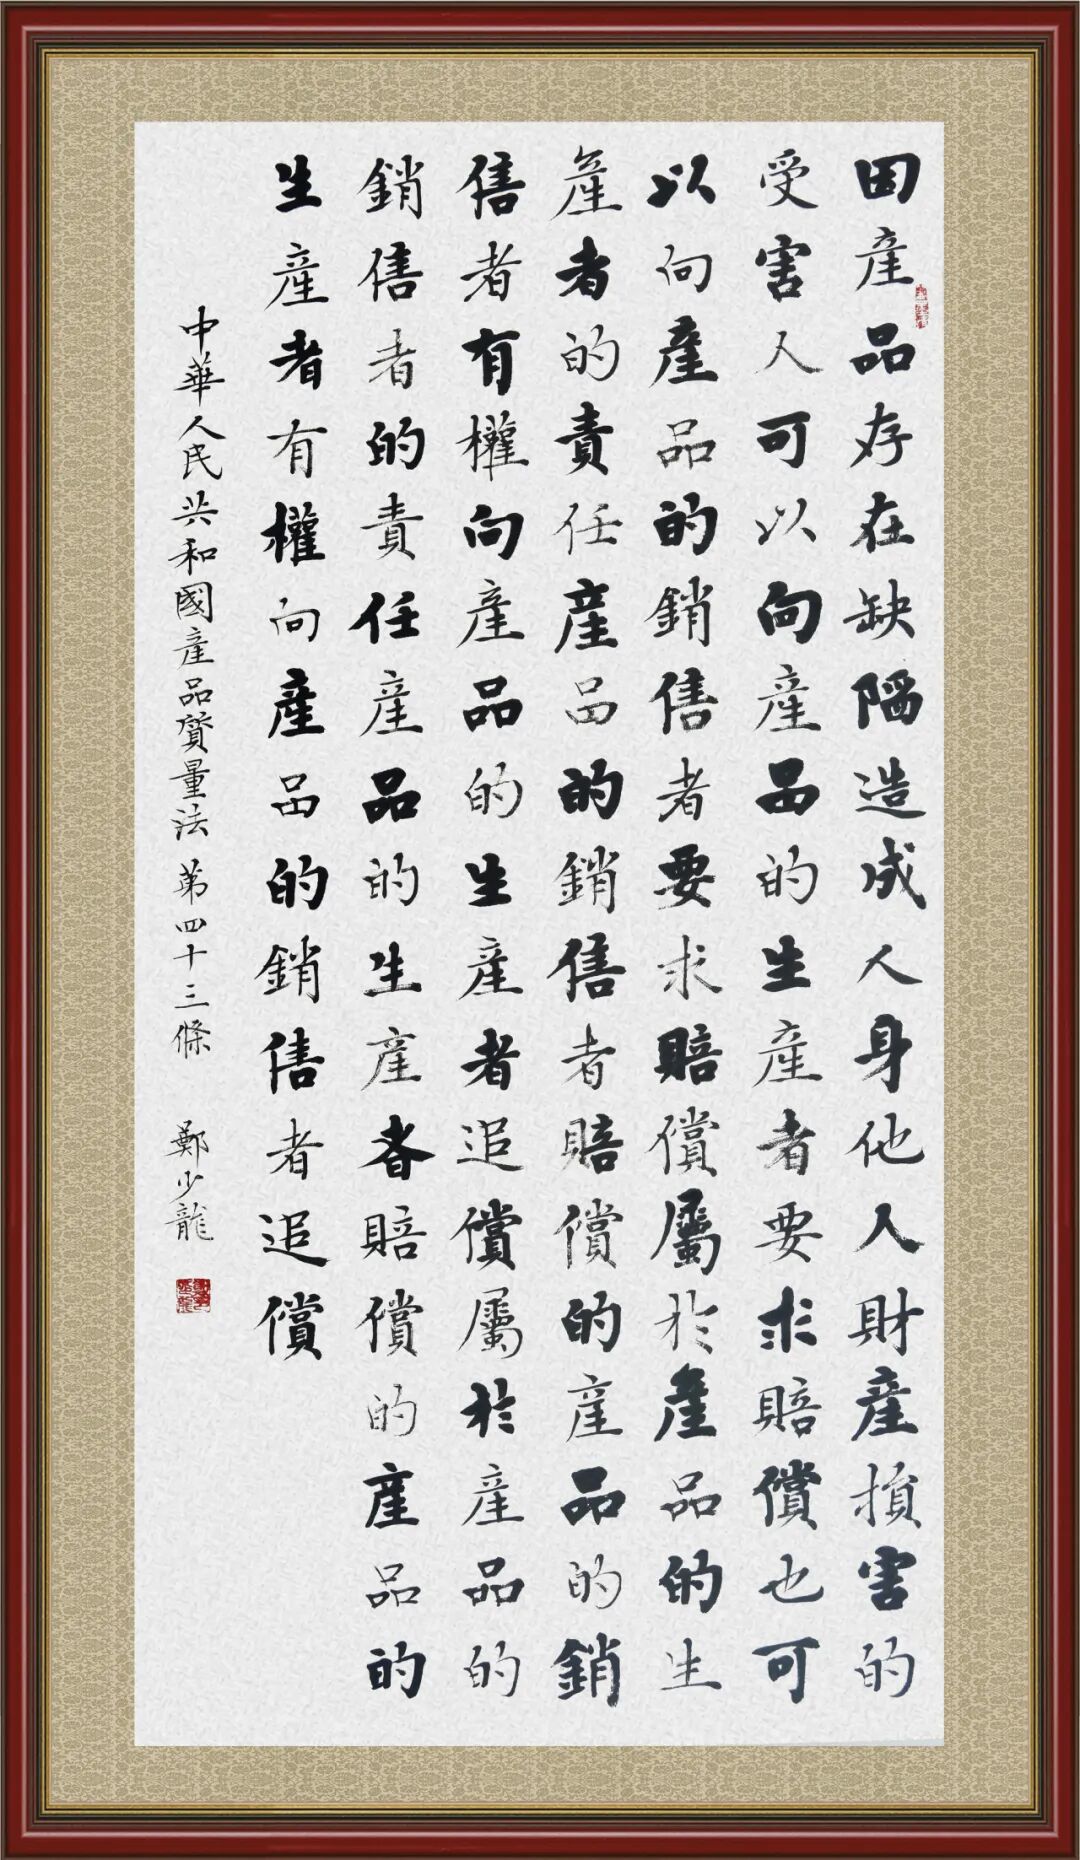 因產品存在缺陷造成人身他人財產損害的
受害人可以向產品的生產者要求賠償也可
以向產品的銷售者要求賠償屬於產品的生
產者的責任產品的銷售者賠償的產品的銷
售者有權向產品的生產者追償屬於產品的
銷售者的責任產品的生產者賠償的產品的
生產者有權向產品的銷售者追償
中華人民共和國產品質量法 第四十三條 鄭少龍